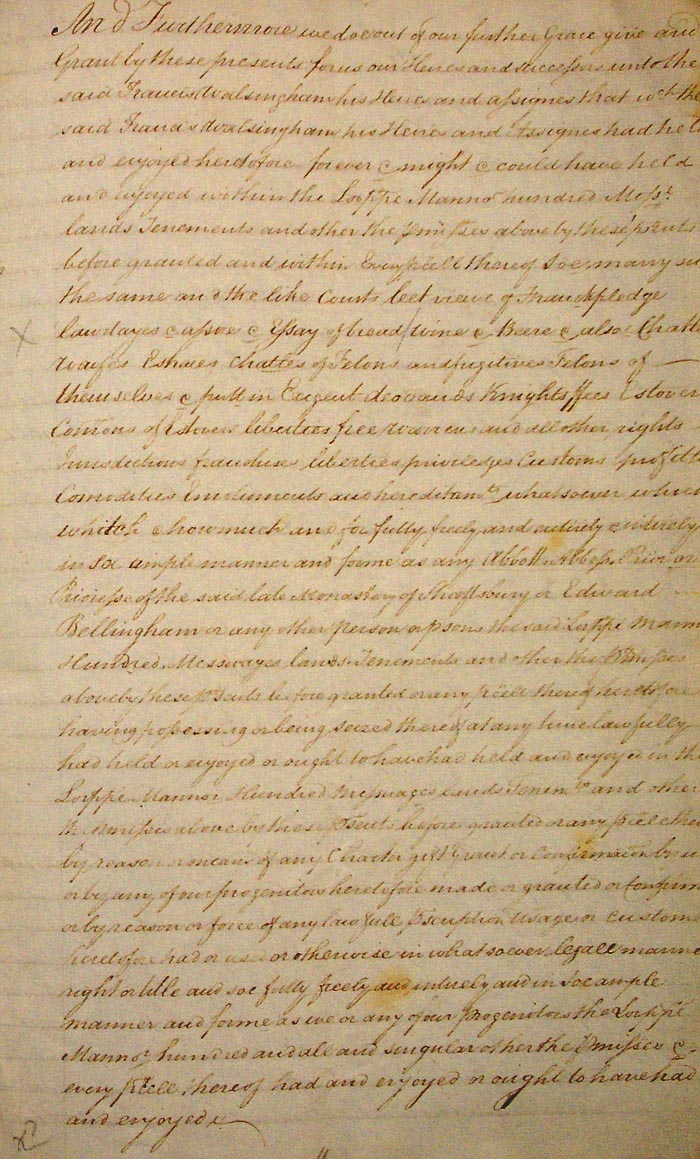 And Furthermore we doe out of our further Grace give and
Grant by these presents for us our Heires and successors unto the
said Francis Walsingham his Heires and assignes that wch the
said Francis Walsingham his Heires and Assignes had held
and enjoyed heretofore forever & might & could have held
and enjoyed within the Lorppe Mannor hundred Messs
lands Tenements and other the pmisses above by these psents
before granted and within Every pcell thereof Soe many su
the same and the like Courts leet view of Frankpledge
lawdayes & assise & Essay of bread / wine & Beere & also Chatte
wayfes Estraes Chattes of Felons and fugitives Felons of
themselves & putt in Exigent deodands Knights ffees Estover
Comons of Estovers liberties free warrens and all other rights
Jurisdictions franchises liberties priviledges Customs profitts
Comodities Emoluments and hereditamts whatsoever which
whitch & howmuch and soe fully freely and entirely & intirely
in soe ample manner and forme as any Abbott Abbess, Prior or
Prioresse of the said late Monastery of Shaftsbury or Edward
Bellingham or any other person or psons the said Lorppe Mann
Hundred Messuages, lands Tenements and other the Pmisses
above by these psents before granted or any pcell thereof heretofore
having possessing or being seized thereof at any time lawfully
had held or enjoyed or ought to have had held and enjoyed in the
Lorppe Mannor Hundred Messuages lands Tenemts and other
the Pmisses above by these psents before granted or any pcell there
by reason or means of any Charter gift Grant or Confirmation by u
or by any of our progenitors heretofore made or granted or Confirm
or by reason or force of any lawfull pscription Usage or custome
heretofore had or used or otherwise in what soever legall manne
right or title and soe fully freely and intirely and in soe ample
manner and forme as we or any of our Progenitors the Lorppe
Mannor hundred and all and singular other the Pmisses &
every pcell thereof had and enjoyed or ought to have had
and enjoyed